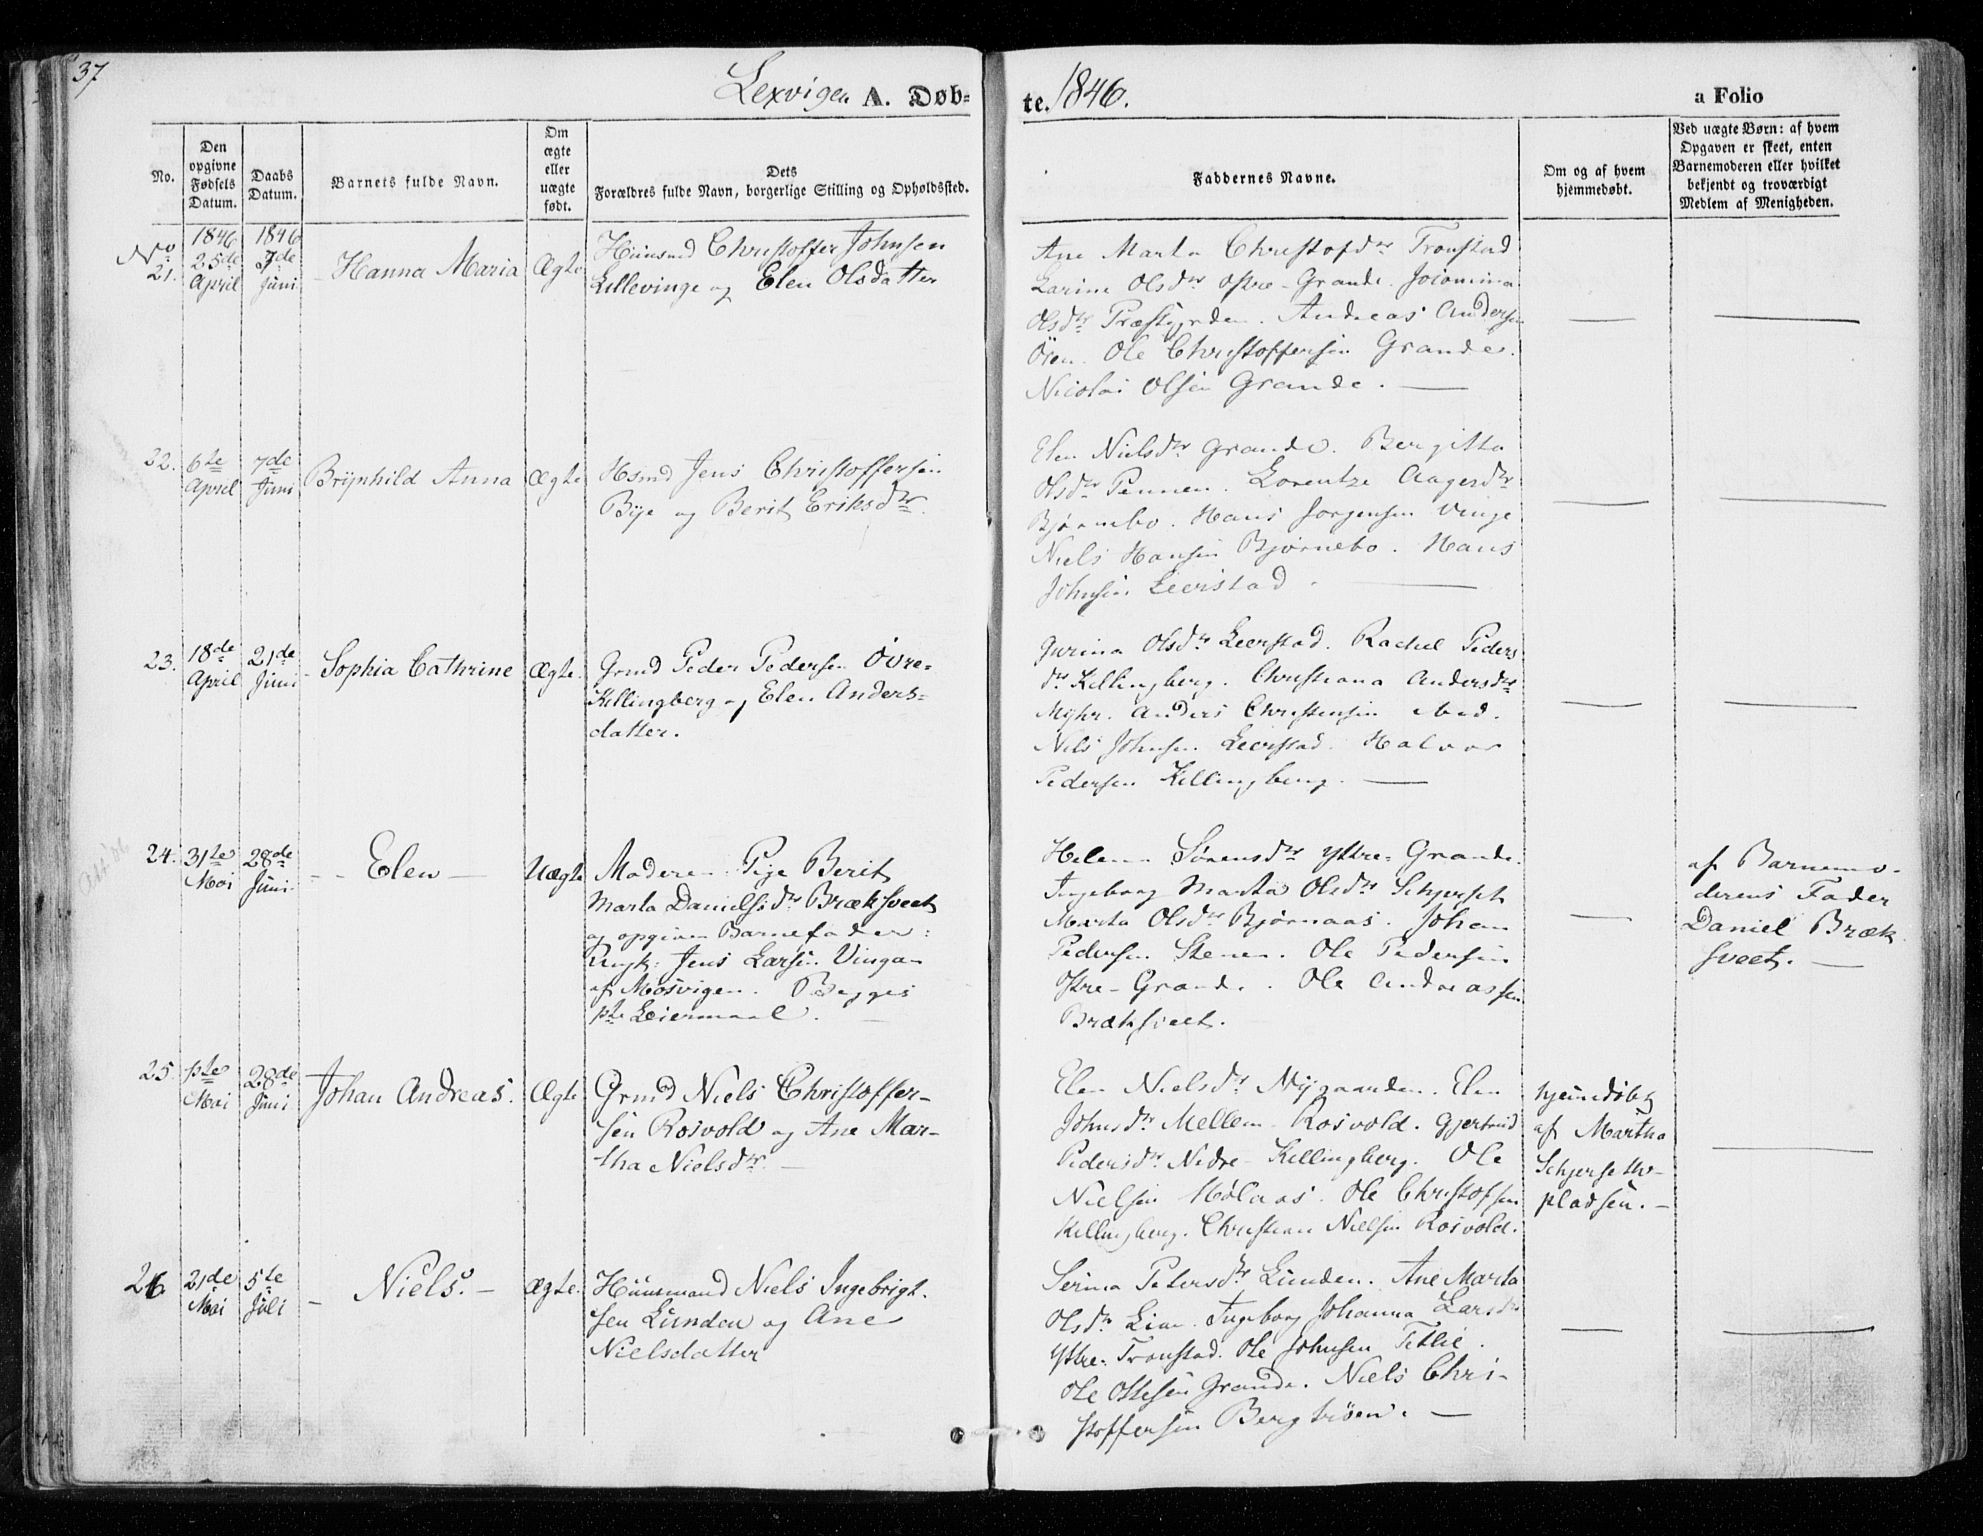 37
Lexvigen A. Døb=
te. 1846.
a Folio
No.
Den opgivne Fødsels Datum.
Daabs Datum.
Barnets fulde Navn.
Om ægte eller uægte født.
Dets
Forældres fulde Navn, borgerlige Stilling og Opholdssted.
Faddernes Navne.
Om og af hvem hjemmedøbt.
Ved uægte Børn: af hvem
Opgaven er skeet, enten
Barnemoderen eller hvilket
bekjendt og troværdigt
Medlem af Menigheden.
No 21.
1846 25de April
1846 7de Juni
Hanna Maria
Ægte
Huusmd Christoffer Johnsen
Lillevinge og Elen Olsdatter
Ane Marta Christofdtr Tronstad
Larine Olsdtr østre-Grande. Josomina
Olsdtr Præstgrden. Andreas Andersen
Öien. Ole Christoffersen Grande.
Nicolai Olsen Grande. —
—
—
22.
6te April
7de Juni
Brynhild Anna
Ægte
Hsmd Jens Christoffersen
Bye og Berit Eriksdtr.
Elen Nielsdtr Grande. Bergitta
Olsdtr Pennen. Lorentze Aagesdtr
Bjørnebo. Hans Jorgensen Vinge
Niels Hansen Bjørnebo. Hans
Johnsen Leerstad. —
—
—
23.
18de April
21de Juni
Sophia Cathrine
Ægte.
Grmd Peder Pedersen Øvre=
Killingberg og Elen Anders=
datter.
Gurina Olsdtr Leerstad. Rachel Peders
dtr Killingberg. Christiana Andersdtr
Myhr. Anders Christensen ibid.
Nils Johnsen Leerstad. Halvor
Pedersen Killingberg. —
—
—
24.
31te Mai
28de Juni
Elen —
Uægte
Moderen Pige Berit
Marta Danielsdtr BrækSveet
og opgiven Barnefader:
Ungk: Jens Larsen Vinga-
af Mosvigen. Begges
1ste Leiermaal. —
Helena Sörensdtr Yttre-Grande.
Ingeborg Marta Olsdtr Schjerset
Marta Olsdtr Bjørnaas. Johan
Pedersen Stenen. Ole Pedersen
Østre-Grande. Ole Andreassen
BrækSveet.
—
af Barnemo-
derens Fader
Daniel Bræk
Sveet. —
25.
1ste Mai
28de Juni
Johan Andreas.
Ægte
Grmd Niels Christoffer-
sen Rosvold og Ane Mar-
tha Nielsdtr. —
Elen Nielsdtr Nygaarden. Elen
Johnsdtr Mellem-Rosvold. Gjertrud
Pedersdtr Nedre-Killingberg. Ole
Nielsen Molaas. Ole Christofsen
Killingberg. Christian Nielsen Rosvold.
hjemmedøbt
af Martha
Schjerseth-
pladsen. —
—
26
21de Mai
5te Juli
Niels. —
Ægte.
Huusmand Niels Ingebrigt-
sen Lunden og Ane
Nielsdatter
Serina Petersdtr Lunden. Ane Marta
Olsdtr Lien. Ingeborg Johanna Larsdtr
Yttre-Tronstad. Ole Johnsen Tetlie.
Ole Ottesen Grande. Niels Chri-
stoffersen Bergtrøen. —
—
—